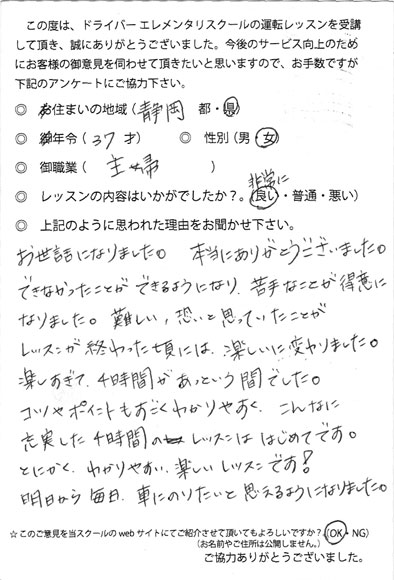 この度は、ドライバー エレメンタリスクールの運転レッスンを受講
して頂き、誠にありがとうございました。今後のサービス向上のため
にお客様の御意見を伺わせて頂きたいと思いますので、お手数ですが
下記のアンケートにご協力下さい。
◎ お住まいの地域(静岡 都・県)
◎ 年令(37才) ◎ 性別(男・女)
◎ 御職業(主婦)
非常に
◎ レッスンの内容はいかがでしたか?(良い・普通・悪い)
◎ 上記のように思われた理由をお聞かせ下さい。
お世話になりました。 本当にありがとうございました。
できなかったことが できるようになり、苦手なことが得意に
なりました。難しい、恐いと思っていたことが
レッスンが終わった頃には、楽しいに変わりました。
楽しすぎて、4時間があっという間でした。
コツやポイントもすごくわかりやすく、こんなに
充実した4時間のレッスンは はじめてです。
とにかく、わかりやすい、楽しい レッスンです!
明日から 毎日、車にのりたいと思えるようになりました。
☆このご意見を当スクールのwebサイトにてご紹介させて頂いてもよろしいですか?(OK・NG)
(お名前やご住所は公開しません。)
ご協力ありがとうございました。